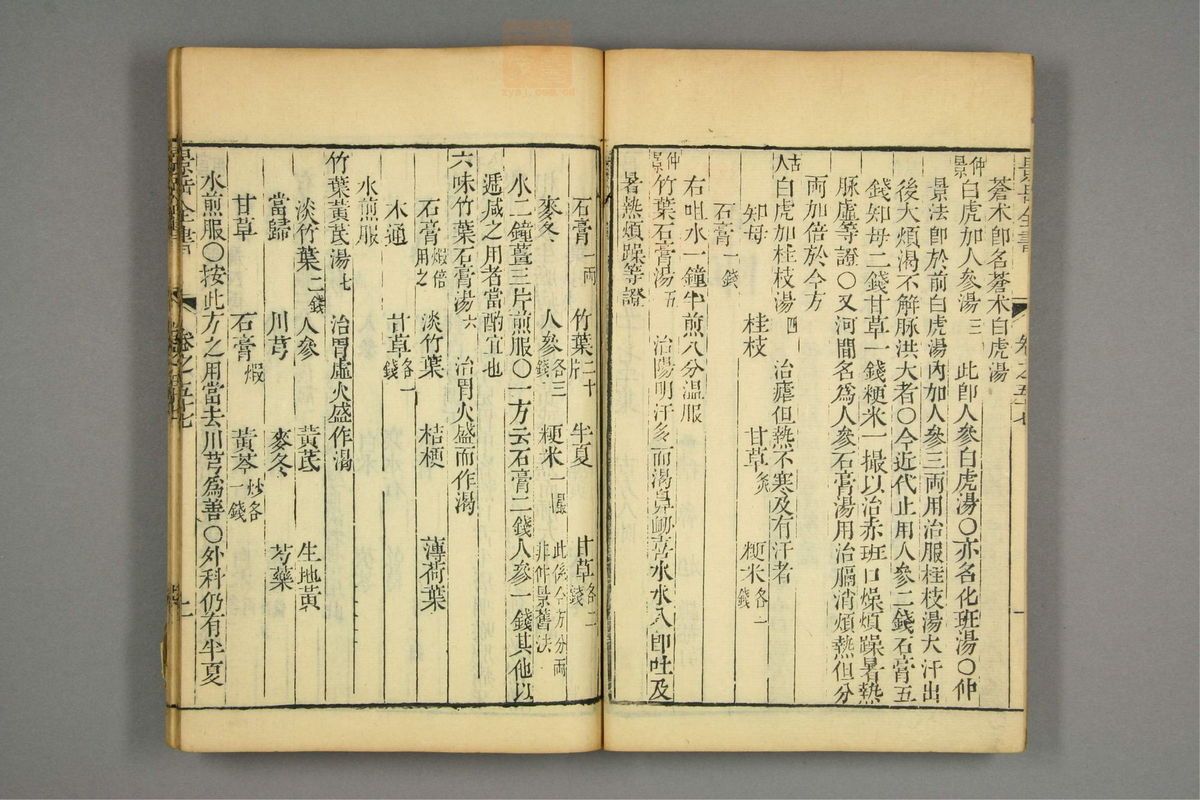 蒼术卽名蒼术白虎湯
仲景白虎加人參湯三 此卽人參白虎湯〇亦名化班湯〇仲
景法卽於前白虎湯內加人參三両用治服桂枝湯大汗出
後大煩渴不解脉洪大者〇今近代止用人參二錢石膏五
錢知母二錢甘草一錢粳米一撮以治赤班口燥煩躁暑熱
脉虛等證〇又河間名爲人參石膏湯用治膈消煩熱但分
両加倍於今方
古人白虎加桂枝湯四 治瘧但熱不寒及有汗者
知母 桂枝 甘草炙 粳米各二錢
石膏一錢
右咀水一鐘半煎八分温服
仲景竹葉石膏湯五 治陽明汗多而渴鼻衂喜水水入卽吐及
暑熱煩躁等證
石膏一両 竹葉二十片 半夏 甘草各二錢
麥冬 人參各三錢 粳米一撮 此係今方分両非仲景舊法
水二鐘薑三片煎服〇一方云石膏二錢人參一錢其他以
遞減之用者當酌宜也
六味竹葉石膏湯六 治胃火盛而作渴
石膏煆倍用之 淡竹葉 桔梗 薄荷葉
木通 甘草各一錢
水煎服
竹葉黃芪湯七 治胃虛火盛作渴
淡竹葉二錢 人參 黃芪 生地黃
當歸 川芎 麥冬 芍藥
甘草 石膏煆 黃芩炒各一錢
水煎服〇按此方之用當去川芎爲善〇外科仍有半夏
景岳全書 卷之五十七